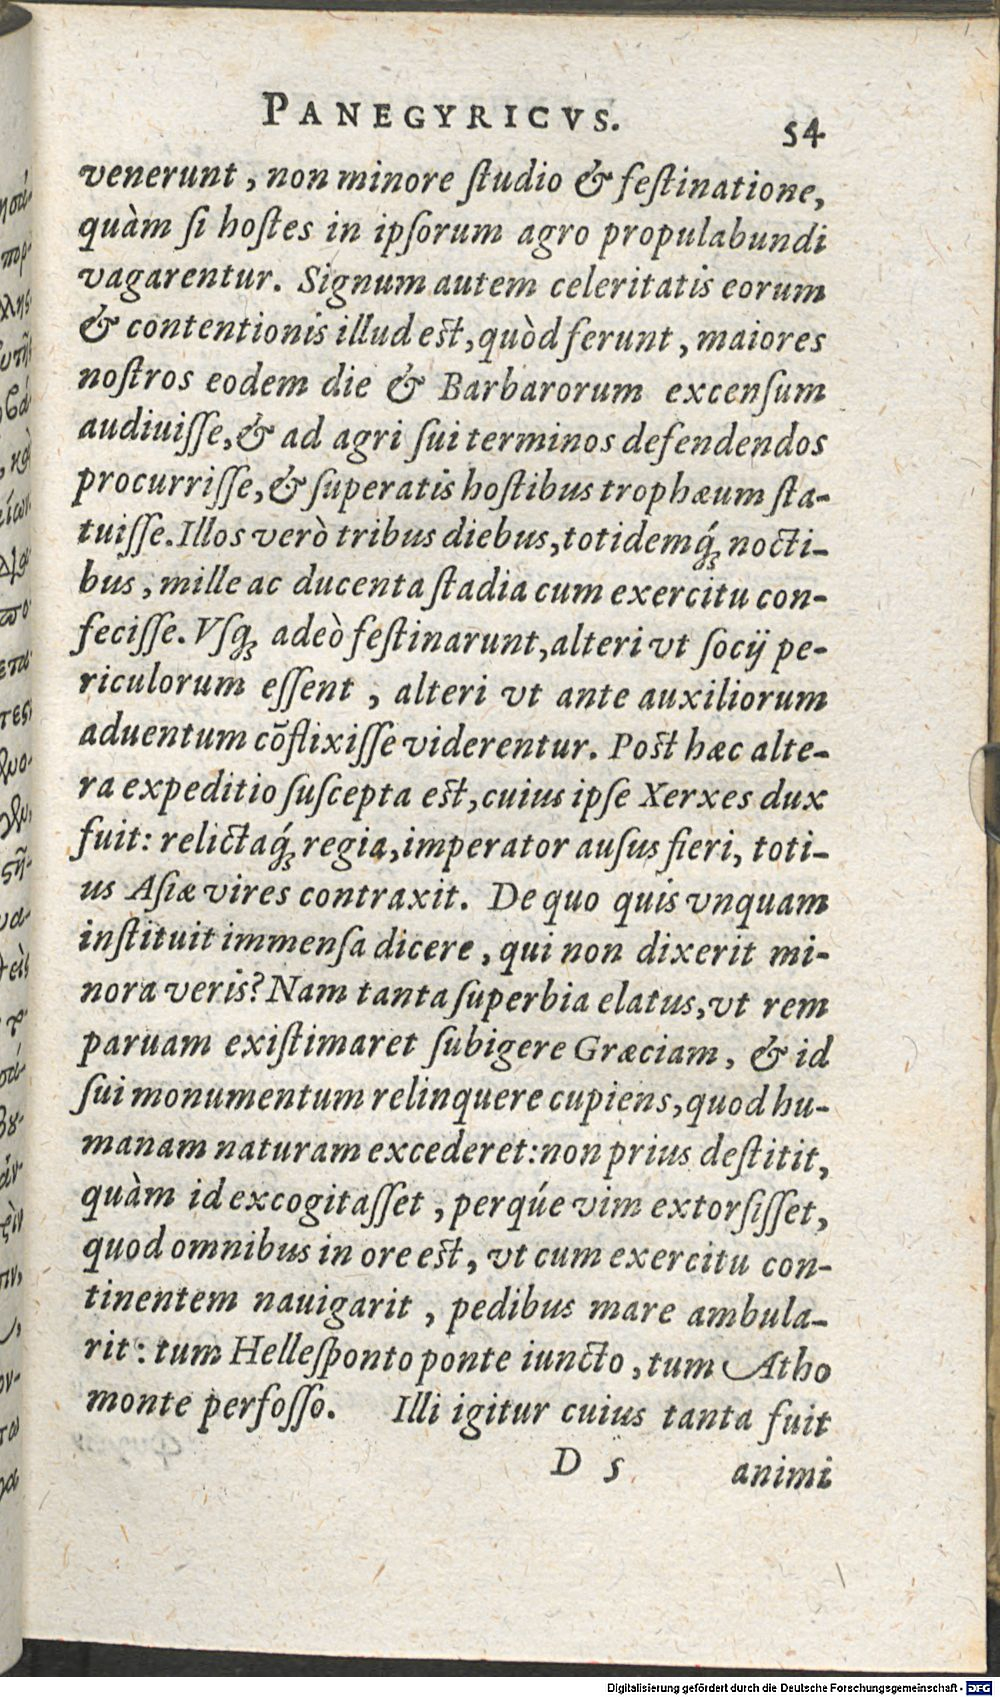 PANEGYRICVS.
54
venerunt, non minore ſtudio & feſtinatione,
quàm ſi hoſtes in ipſorum agro propulabundi
vagarentur. Signum autem celeritatis eorum
& contentionis illud est, quòd ferunt, maiores
noſtros eodem die & Barbarorum excenſum
audiuiſſe, & ad agri ſui terminos defendendos
procurriſſe, & ſuperatis hoſtibus trophæum ſta-
tuiſſe. Illos verò tribus diebus, totidemq́ꝫ nocti-
bus, mille ac ducenta ſtadia cum exercitu con-
feciſſe. Vſqꝫ adeò feſtinarunt, alteri vt ſocij pe-
riculorum eſſent, alteri vt ante auxiliorum
aduentum cõflixiſſe viderentur. Post hæc alte-
ra expeditio ſuſcepta est, cuius ipſe Xerxes dux
fuit: relictaq́ꝫ regia, imperator auſus fieri, toti-
us Aſiæ vires contraxit. De quo quis vnquam
inſtituit immenſa dicere, qui non dixerit mi-
nora veris? Nam tanta ſuperbia elatus, vt rem
paruam exiſtimaret ſubigere Græciam, & id
ſui monumentum relinquere cupiens, quod hu-
manam naturam excederet: non prius deſtitit,
quàm id excogitaſſet, perqúe vim extorſiſſet,
quod omnibus in ore est, vt cum exercitu con-
tinentem nauigarit, pedibus mare ambula-
rit: tum Helleſponto ponte iuncto, tum Atho
monte perfoſſo. Illi igitur cuius tanta fuit
D 5 animi
Digitalisierung gefördert durch die Deutsche Forschungsgemeinschaft - DFG